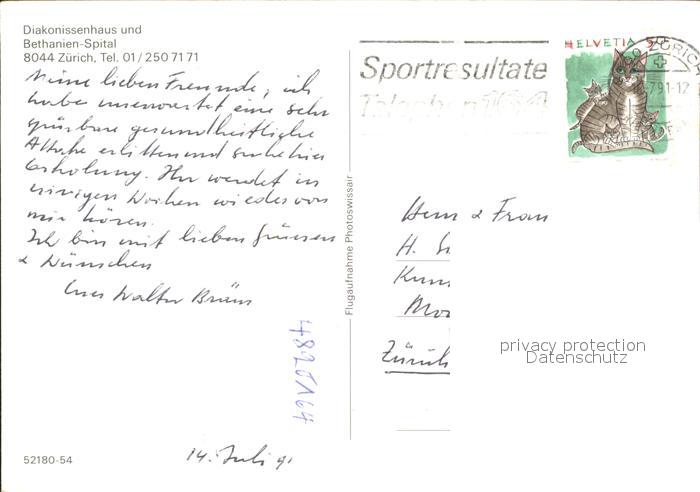 Diakonissenhaus und
Bethanien-Spital
8044 Zürich, Tel. 01/250 71 71
Meine lieben Freunde, ich
habe unerwartet eine sehr
spürbare gesundheitliche
Attacke erlitten und suche hier
Erholung. Ihr werdet in
einigen Wochen wieder von
mir hören.
Ich bin mit lieben Grüssen
& Wünschen
Euer Walter Bräm
14. Juli 91
52180-54
4820164
Flugaufnahme Photoswissair
Sportresultate
Telephon 164
HELVETIA 50
ZÜRICH
.7.91-12
Herr & Frau
H.
Zürich
privacy protection
Datenschutz